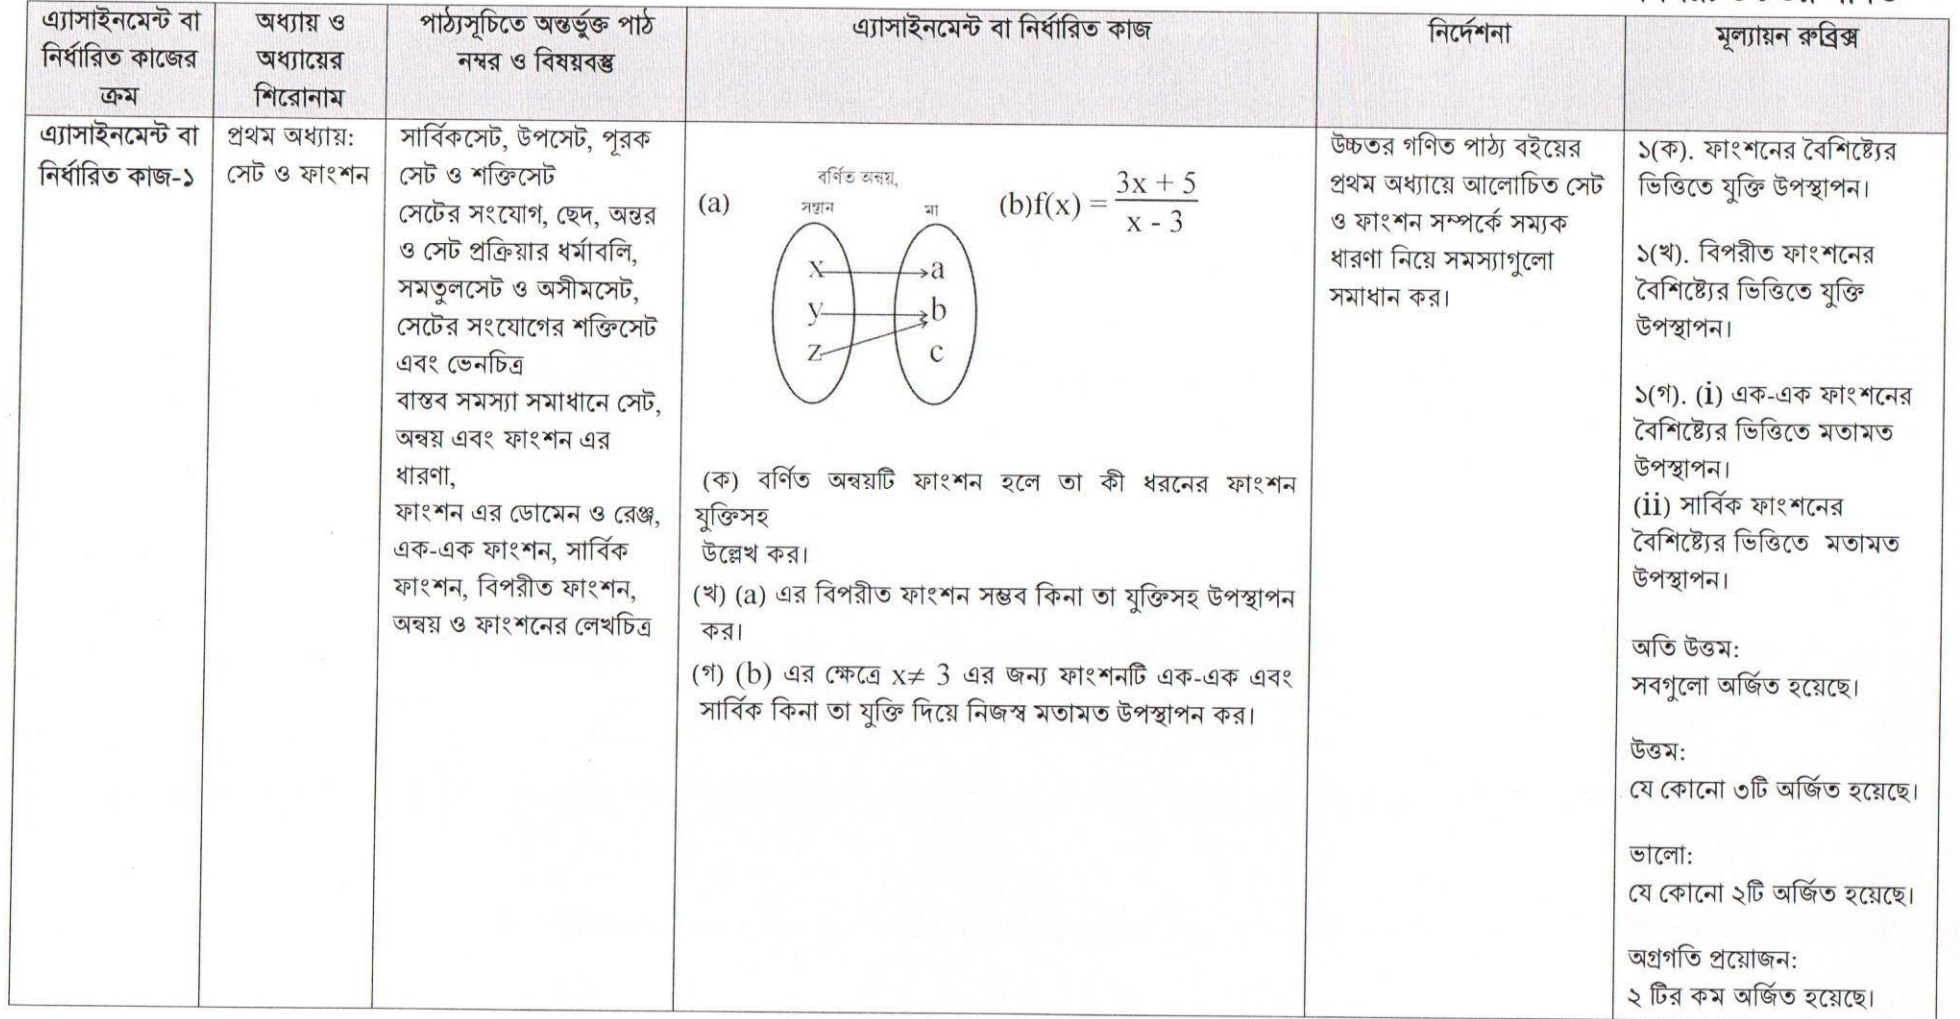 এ্যাসাইনমেন্ট বা
নির্ধারিত কাজের
ক্রম
অধ্যায় ও
অধ্যায়ের
শিরোনাম
পাঠ্যসূচিতে অন্তর্ভুক্ত পাঠ
নম্বর ও বিষয়বস্তু
এ্যাসাইনমেন্ট বা নির্ধারিত কাজ
নির্দেশনা
মূল্যায়ন রুব্রিক্স
এ্যাসাইনমেন্ট বা
নির্ধারিত কাজ-১
প্রথম অধ্যায়:
সেট ও ফাংশন
সার্বিকসেট, উপসেট, পূরক
সেট ও শক্তিসেট
সেটের সংযোগ, ছেদ, অন্তর
ও সেট প্রক্রিয়ার ধর্মাবলি,
সমতুলসেট ও অসীমসেট,
সেটের সংযোগের শক্তিসেট
এবং ভেনচিত্র
বাস্তব সমস্যা সমাধানে সেট,
অন্বয় এবং ফাংশন এর
ধারণা,
ফাংশন এর ডোমেন ও রেঞ্জ,
এক-এক ফাংশন, সার্বিক
ফাংশন, বিপরীত ফাংশন,
অন্বয় ও ফাংশনের লেখচিত্র
বর্ণিত অন্বয়,
(a) সন্তান মা
x a
y b
z c
(b)f(x) = 3x + 5 / x - 3
(ক) বর্ণিত অন্বয়টি ফাংশন হলে তা কী ধরনের ফাংশন
যুক্তিসহ
উল্লেখ কর।
(খ) (a) এর বিপরীত ফাংশন সম্ভব কিনা তা যুক্তিসহ উপস্থাপন
কর।
(গ) (b) এর ক্ষেত্রে x≠ 3 এর জন্য ফাংশনটি এক-এক এবং
সার্বিক কিনা তা যুক্তি দিয়ে নিজস্ব মতামত উপস্থাপন কর।
উচ্চতর গণিত পাঠ্য বইয়ের
প্রথম অধ্যায়ে আলোচিত সেট
ও ফাংশন সম্পর্কে সম্যক
ধারণা নিয়ে সমস্যাগুলো
সমাধান কর।
১(ক). ফাংশনের বৈশিষ্ট্যের
ভিত্তিতে যুক্তি উপস্থাপন।
১(খ). বিপরীত ফাংশনের
বৈশিষ্ট্যের ভিত্তিতে যুক্তি
উপস্থাপন।
১(গ). (i) এক-এক ফাংশনের
বৈশিষ্ট্যের ভিত্তিতে মতামত
উপস্থাপন।
(ii) সার্বিক ফাংশনের
বৈশিষ্ট্যের ভিত্তিতে মতামত
উপস্থাপন।
অতি উত্তম:
সবগুলো অর্জিত হয়েছে।
উত্তম:
যে কোনো ৩টি অর্জিত হয়েছে।
ভালো:
যে কোনো ২টি অর্জিত হয়েছে।
অগ্রগতি প্রয়োজন:
২ টির কম অর্জিত হয়েছে।